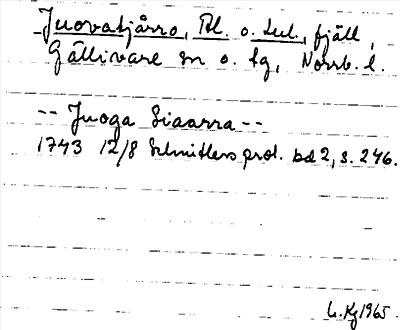 Juovatjårro, Pl. o. Lul., fjäll,
Gällivare sn o. tg, Norrb. l.
-- Juoga Siaarra --
1743 12/8 Schnitlers prot. bd 2, s. 246.
1965